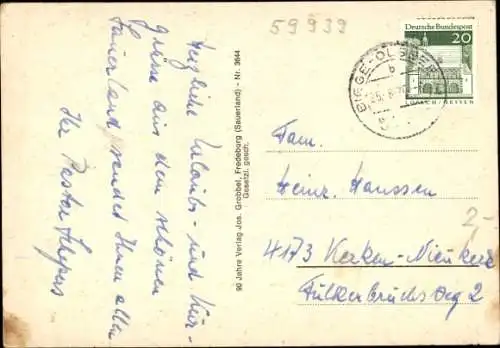 59939
Deutsche Bundespost
20
LORSCH/HESSEN
BIGGE-OLSBERG
b
Herzliche Urlaubs- und Kur-
grüße aus dem schönen
Sauerland sendet Ihnen allen
Ihr Pastor
90 Jahre Verlag Jos. Grobbel, Fredeburg (Sauerland) - Nr. 3644
Gesetzl. gesch.
Fam.
Heinz Hanssen
4173 Kerken-Nieukerk
Fulkerbruchsweg 2
2,-